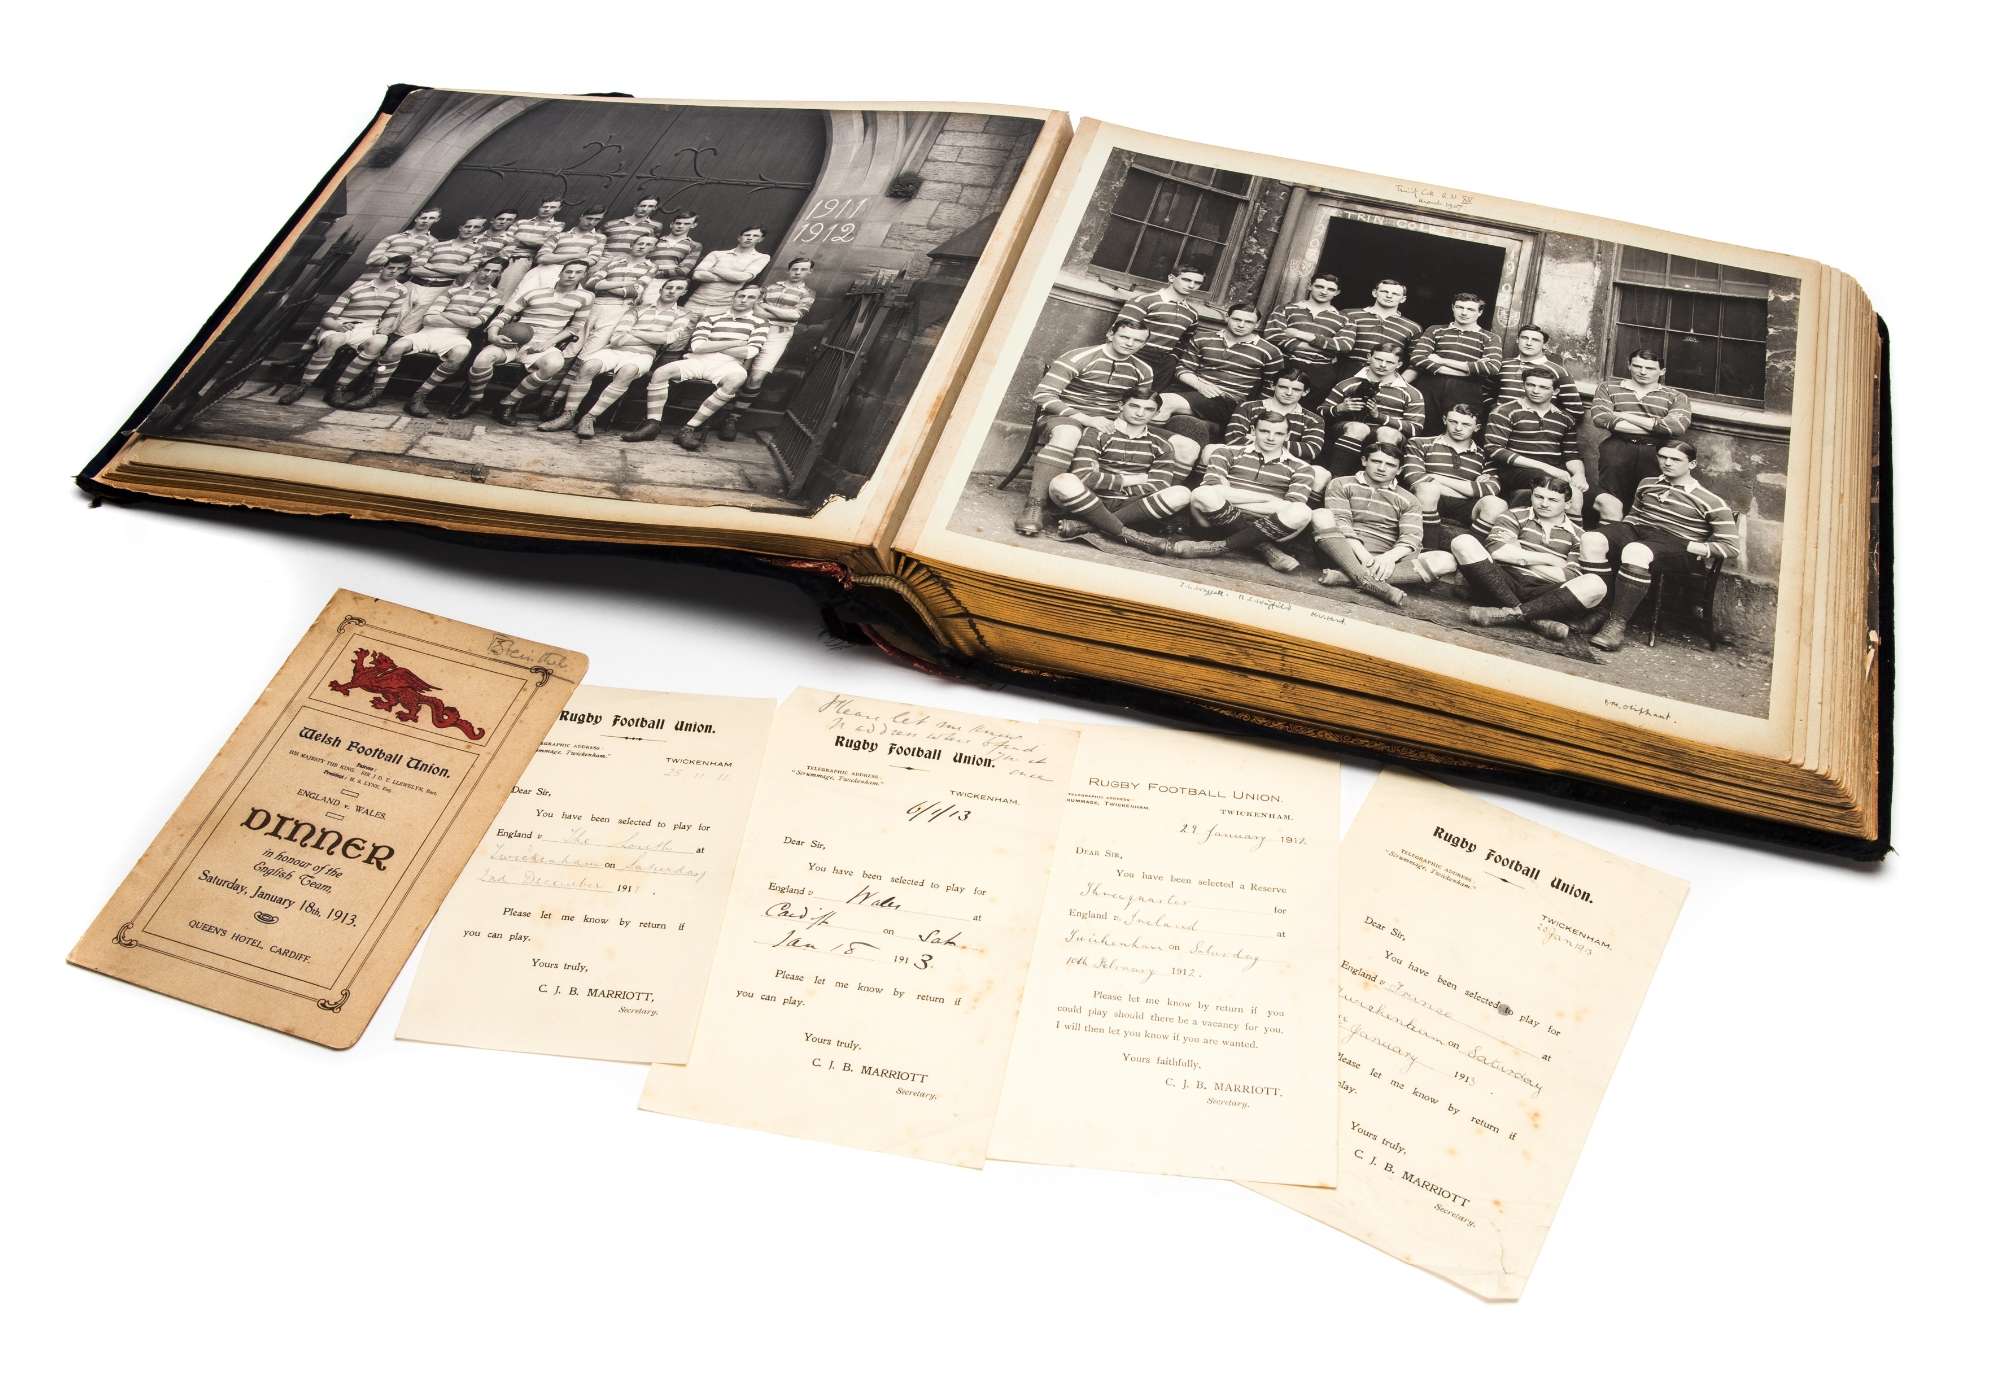 1911
1912
TRIN. COLLEGE
March 1907
E.M. Oliphant.
Welsh Football Union.
Patrons:
HIS MAJESTY THE KING. SIR J. D. T. LLEWELYN, Bart.
President: H. S. LYNE, Esq.
ENGLAND v. WALES.
DINNER
in honour of the
English Team,
Saturday, January 18th, 1913.
QUEEN'S HOTEL, CARDIFF.
Rugby Football Union.
TELEGRAPHIC ADDRESS:
Twickenham."
TWICKENHAM
25 11 11
Dear Sir,
You have been selected to play for
England v The South at
Twickenham on Saturday
2nd December 191
Please let me know by return if
you can play.
Yours truly,
C. J. B. MARRIOTT,
Secretary.
Please let me know
address when
once
Rugby Football Union.
TELEGRAPHIC ADDRESS:
"Scrummage, Twickenham."
TWICKENHAM.
6/1/13
Dear Sir,
You have been selected to play for
England v Wales at
Cardiff on Sat
Jan 18 1913.
Please let me know by return if
you can play.
Yours truly.
C. J. B. MARRIOTT
Secretary.
RUGBY FOOTBALL UNION.
TELEGRAPHIC ADDRESS
TWICKENHAM
TWICKENHAM.
29 January 1912
DEAR SIR,
You have been selected a Reserve
Threequarter for
England v. Ireland at
Twickenham on Saturday
10th February 1912.
Please let me know by return if you
could play should there be a vacancy for you.
I will then let you know if you are wanted.
Yours faithfully,
C. J. B. MARRIOTT.
Secretary.
Rugby Football Union.
TELEGRAPHIC ADDRESS:
"Scrummage, Twickenham."
TWICKENHAM.
20 Jan 1913
Dear Sir,
You have been selected to play for
England v France at
Twickenham on Saturday
January 1913.
Please let me know by return if
play.
Yours truly,
C. J. B. MARRIOTT
Secretary.